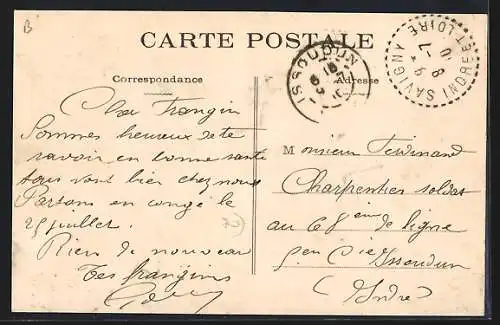 B
CARTE POSTALE
Correspondance
Adresse
ISSOUDUN
MONT SAVIGNY
ET LOIRE
Cher frangin
Sommes heureux de te
savoir en bonne santé
tous vont bien chez nous
Partons en congé le
25 juillet.
Rien de nouveau
Tes frangins
Monsieur Ferdinand
Charpentier soldat
au 68 eme de ligne
Cie Issoudun
(Indre)